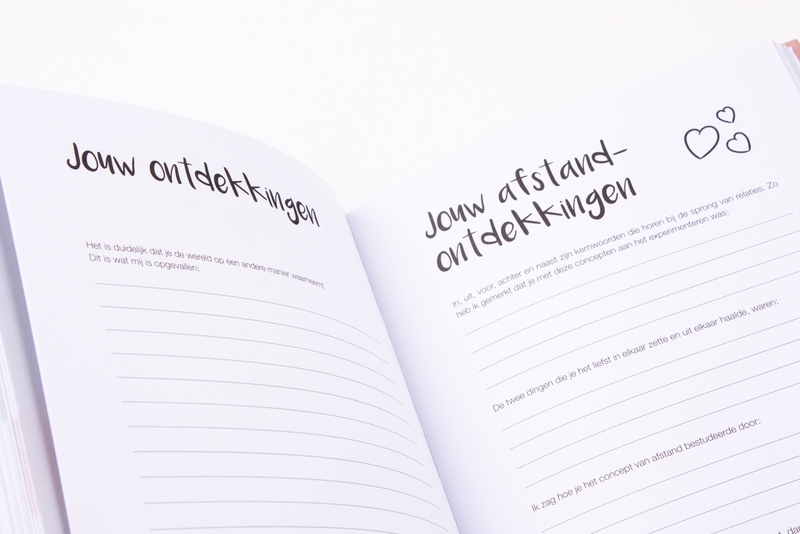 Jouw ontdekkingen
Het is duidelijk dat je de wereld op een andere manier waarneemt.
Dit is wat mij is opgevallen:
Jouw afstand-
ontdekkingen
In, uit, voor, achter en naast zijn kernwoorden die horen bij de sprong van relaties. Zo
heb ik gemerkt dat je met deze concepten aan het experimenteren was:
De twee dingen die je het liefst in elkaar zette en uit elkaar haalde, waren:
Ik zag hoe je het concept van afstand bestudeerde door: